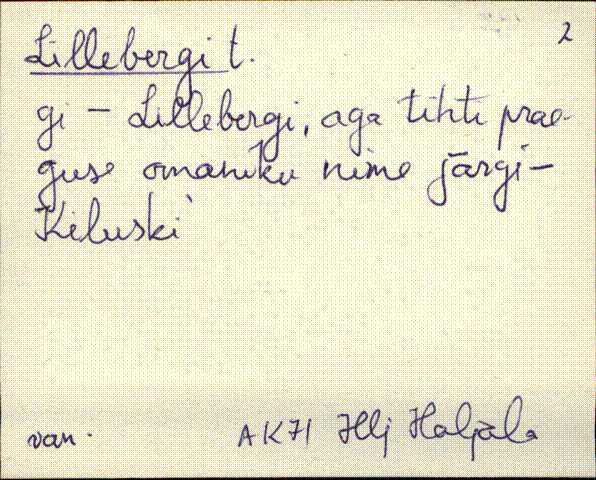 2
Lillebergi t.
gi - Lillebergi, aga tihti prae-
guse omaniku nime järgi -
Kiluski
van. AK71 Hlj Haljala